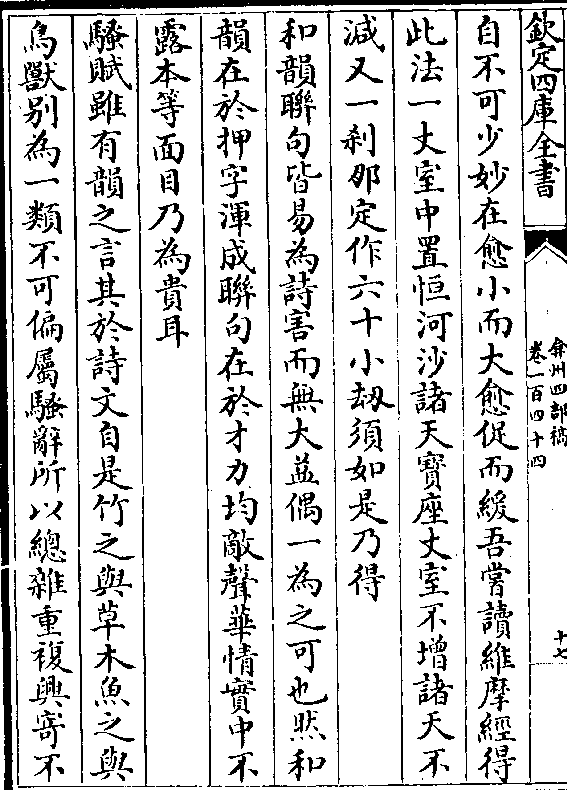 欽定四庫全書
弇州四部稿
卷一百四十四
十七
自不可少妙在愈小而大愈促而緩吾嘗讀維摩經得
此法一丈室中置恒河沙諸天寶座丈室不增諸天不
減又一刹那定作六十小劫須如是乃得
和韻聯句皆易為詩害而無大益偶一為之可也然和
韻在於押字渾成聯句在於才力均敵聲華情實中不
露本等面目乃為貴耳
騷賦雖有韻之言其於詩文自是竹之與草木魚之與
鳥獸别為一類不可偏屬騷辭所以總雜重複興寄不